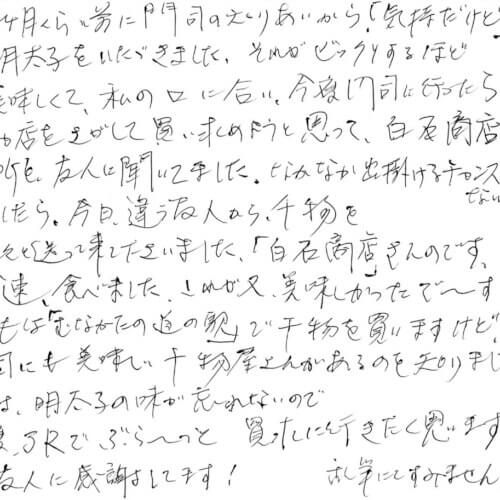 ヶ月くらい前に門司の知りあいから、「気持だけど」
明太子をいただきました。それがビックリするほど
美味しくて、私の口に合い、今度門司に行ったら
お店をさがして買い求めようと思って、白石商店
所を、友人に聞いてました。なかなか出掛けるチャンス
ない
したら。今日、違う友人から、干物を
送って来て下さいました。「白石商店」さんのです。
速、食べました。これが又、美味しかったで〜す
もは「むなかたの道の駅」で干物を買いますけど、
司にも美味しい干物屋さんがあるのを知りまし
は、明太子の味が忘れないので
度、JRでぶら〜っと買いに行きたく思います
友人に感謝してます！ 乱筆にてすみません